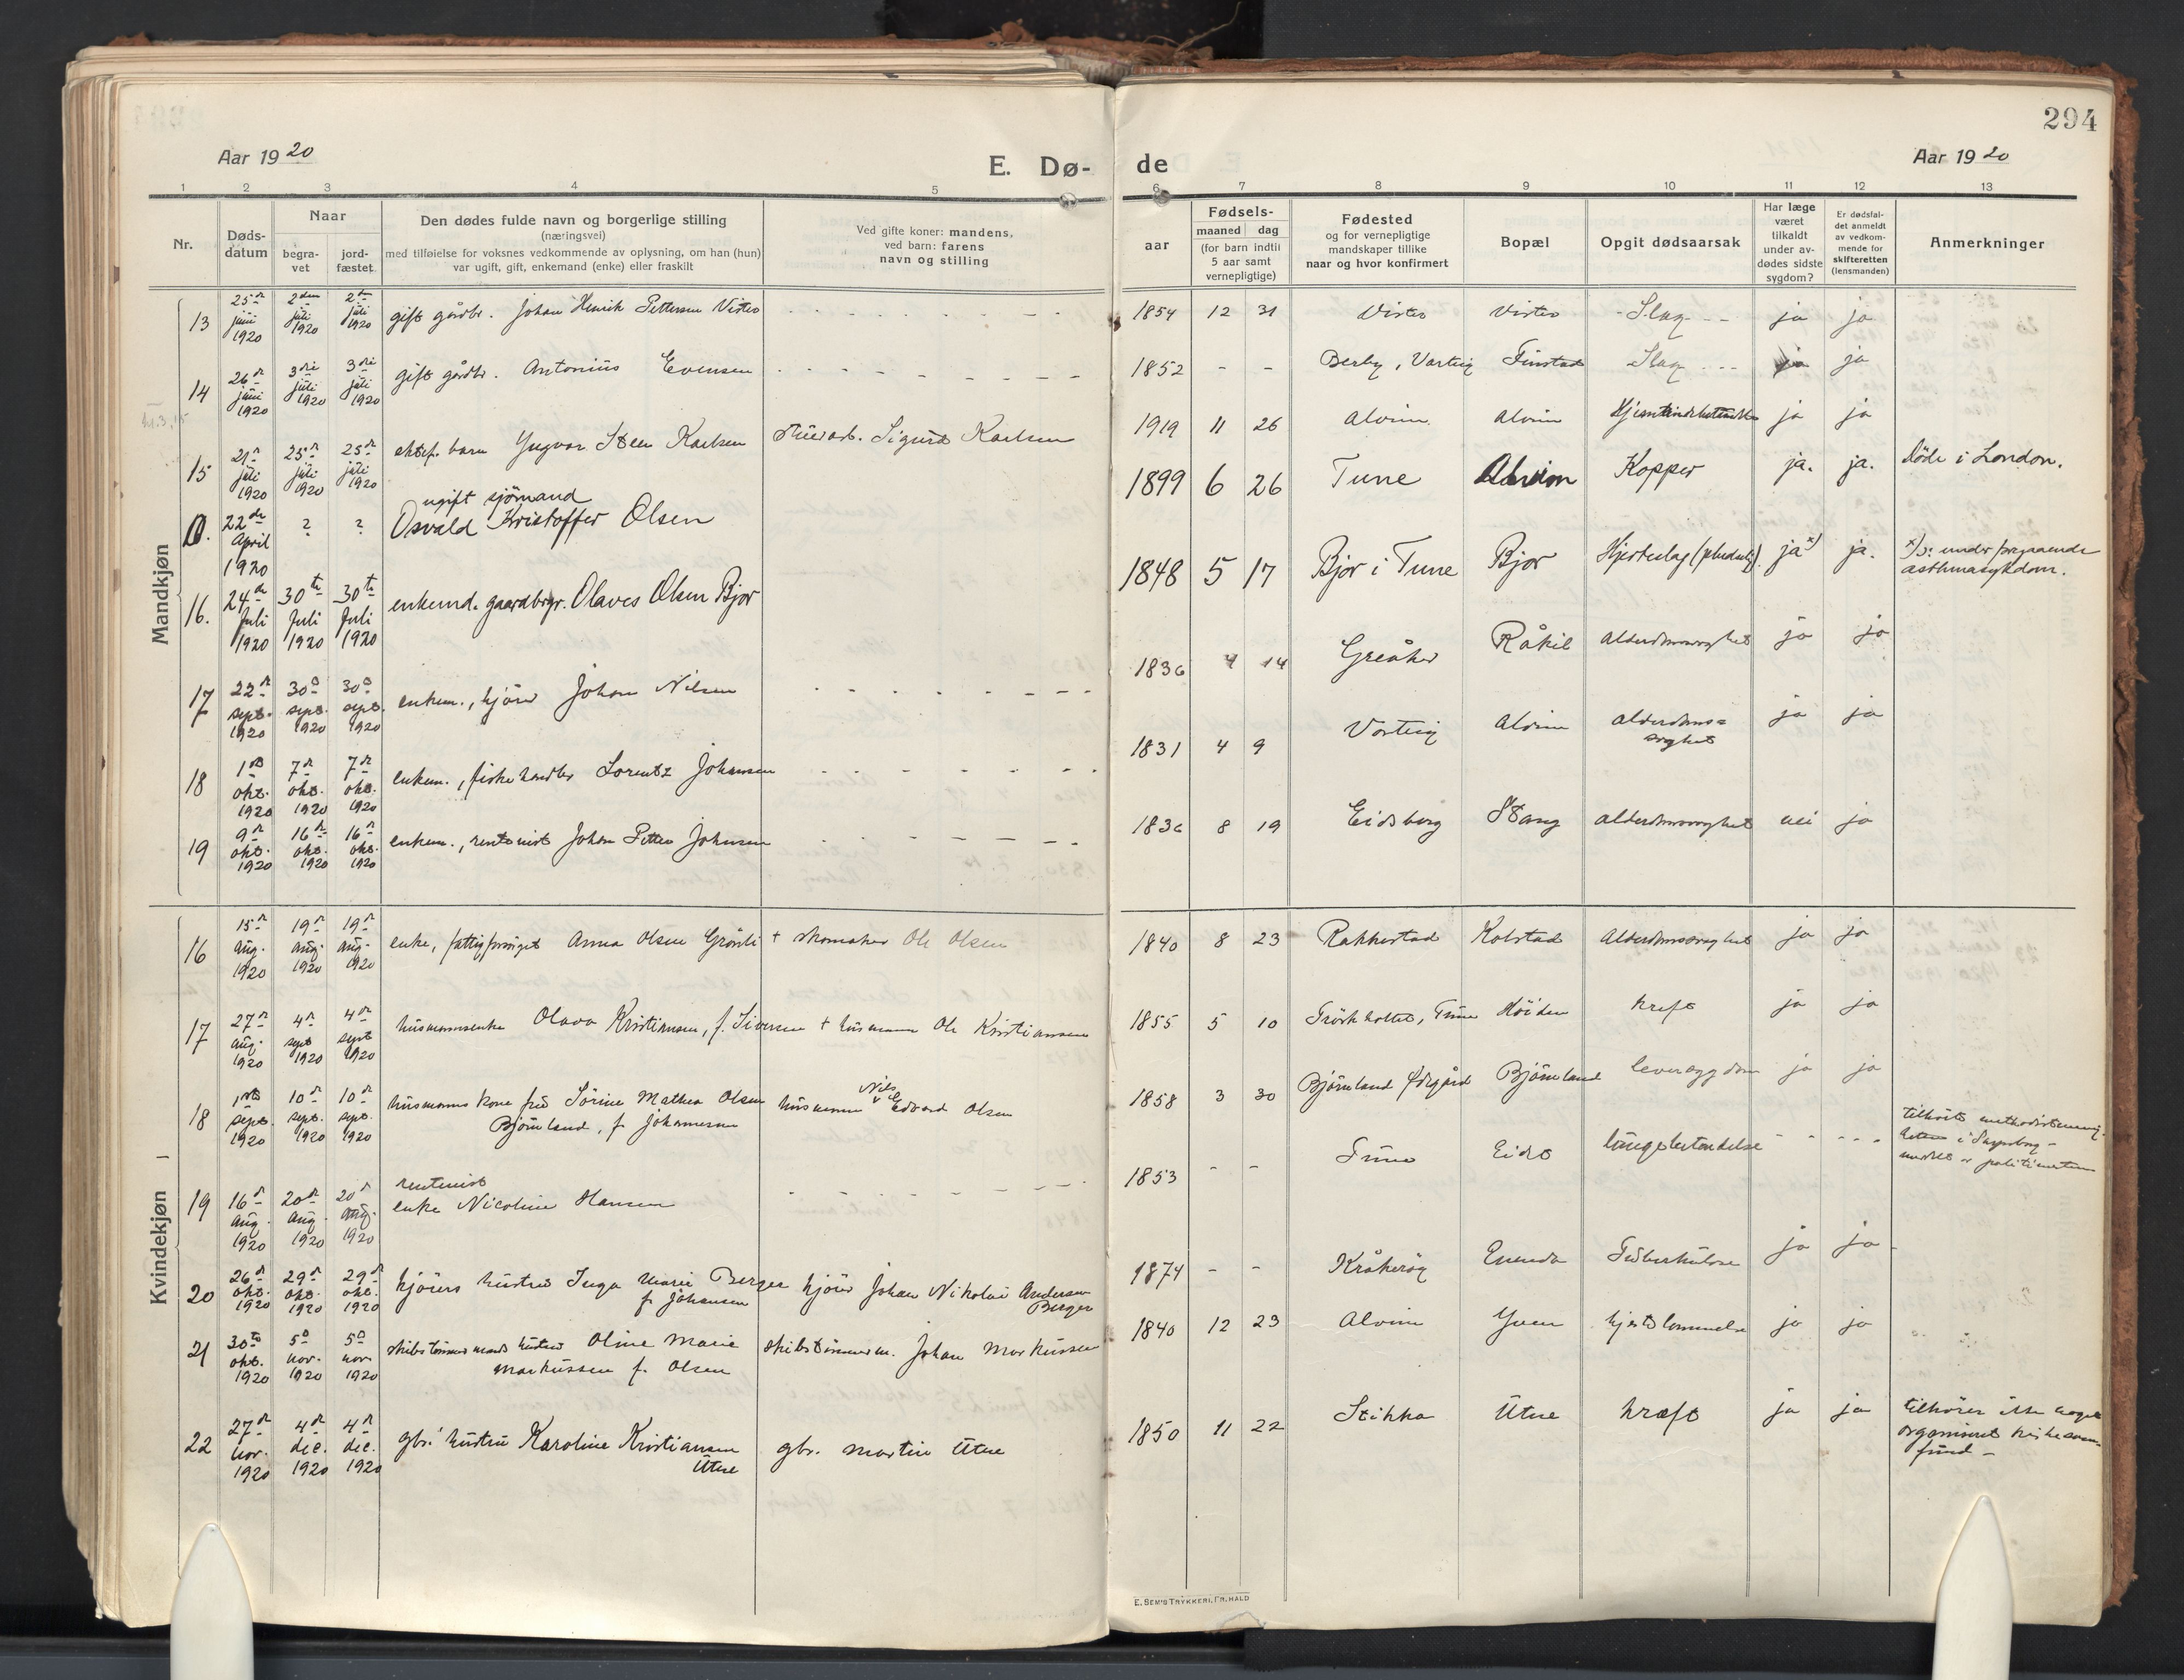 294
Aar 1920
E. Dø-
de
Aar 1920
1 2 3 4 5 6 7 8 9 10 11 12 13
Nr.
Døds-
datum
Naar
begra-
vet
jord-
fæstet
Den dødes fulde navn og borgerlige stilling
(næringsvei)
med tilføielse for voksnes vedkommende av oplysning, om han (hun)
var ugift, gift, enkemand (enke) eller fraskilt
Ved gifte koner: mandens,
ved barn: farens
navn og stilling
aar
Fødsels-
maaned dag
(for barn indtil
5 aar samt
vernepligtige)
Fødested
og for vernepligtige
mandskaper tillike
naar og hvor konfirmert
Bopæl
Opgit dødsaarsak
Har læge
været
tilkaldt
under av-
dødes sidste
sygdom?
Er dødsfal-
det anmeldt
av vedkom-
mende for
skifteretten
(lensmanden)
Anmerkninger
Mandkjøn
13 25de juni 1920 2den juli 1920 2den juli 1920 gift gårdbr. Johan Henrik Pettersen Visteo 1854 12 31 Visteo Visteo Slag ja ja
14 26de juni 1920 3die juli 1920 3die juli 1920 gift gårdbr. Antonius Evensen 1852 - - Berby, Varteig Finstad Slag ja ja
15 21de juli 1920 25de juli 1920 25de juli 1920 ektef. barn Yngvar Sten Karlsen Sigurd Karlsen 1919 11 26 Alvim Alvim ja ja
D. 22de April 1920 ? ? ugift sjömand
Osvald Kristoffer Olsen 1899 6 26 Tune Alvim Kopper ja. ja. Döde i London.
16. 24de Juli 1920 30te Juli 1920 30te Juli 1920 enkemd. gaardbrgr. Olaves Olsen Bjor 1848 5 17 Bjor i Tune Bjor Hjerteslag (pludselig). ja x) ja. x) ɔ: under foregaaende
asthmasykdom.
17 22de sept. 1920 30te sept. 1920 30te sept. 1920 enkem., kjörer Johan Nilsen 1836 4 14 Greåker Råkil alderdomssvaghet ja ja
18 1ste okt. 1920 7de okt. 1920 7de okt. 1920 enkem., fiskehandler Lorentz Johansen 1831 4 9 Varteig Alvim alderdoms=
svaghet ja ja
19 9de okt. 1920 16de okt. 1920 16de okt. 1920 enkem., rentenist Johan Petter Johnsen 1836 8 19 Eidsberg Stang alderdomssvaghet nei ja
Kvindekjøn
16 15de aug. 1920 19de aug. 1920 19de aug. 1920 enke, fattigforsörget Anna Olsen Grönli + skomaker Ole Olsen 1840 8 23 Rakkestad Kolstad Alderdomssvaghet ja ja
17 27de aug. 1920 4de sept 1920 4de sept 1920 husmannsenke Olava Kristiansen, f. Siversen + husmann Ole Kristiansen 1855 5 10 Tune Höiden kreft ja ja
18 1ste sept. 1920 10de sept. 1920 10de sept. 1920 husmanns kone fru Sörine Mathea Olsen
Björnland, f. Johannesen husmann Nils Edvard Olsen 1858 3 30 Björnland Ödegård Björnland leversygdom ja ja
19 16de aug. 1920 20de aug. 1920 20de aug. 1920 rentenist
enke Nicoline Hansen 1853 - - Tune Eidet lungebetendelse - - tilhörte methodistmenig-
heten i Sarpsborg -
20 26de okt. 1920 29de okt. 1920 29de okt. 1920 kjörers hustru Inga Marie Berger
f. Johansen kjörer Johan Nikolai Andersen
Berger 1874 - - Kråkeröy Enenda Tuberkulose ja ja
21 30te okt. 1920 5te nov. 1920 5te nov. 1920 skibstömmermands hustru Oline Marie
Markussen f. Olsen skibstömmerm. Johan Markussen 1840 12 23 Alvim Yven hjertelammelse ja ja
22 27de nov. 1920 4de dec. 1920 4de dec. 1920 gbr. hustru Karoline Kristiansen
Utne gbr. Martin Utne 1850 11 22 Stikka Utne kræft ja ja tilhörer ikke noget
organiseret kirkesam-
fund -
E. SEM'S TRYKKERI, FR.HALD